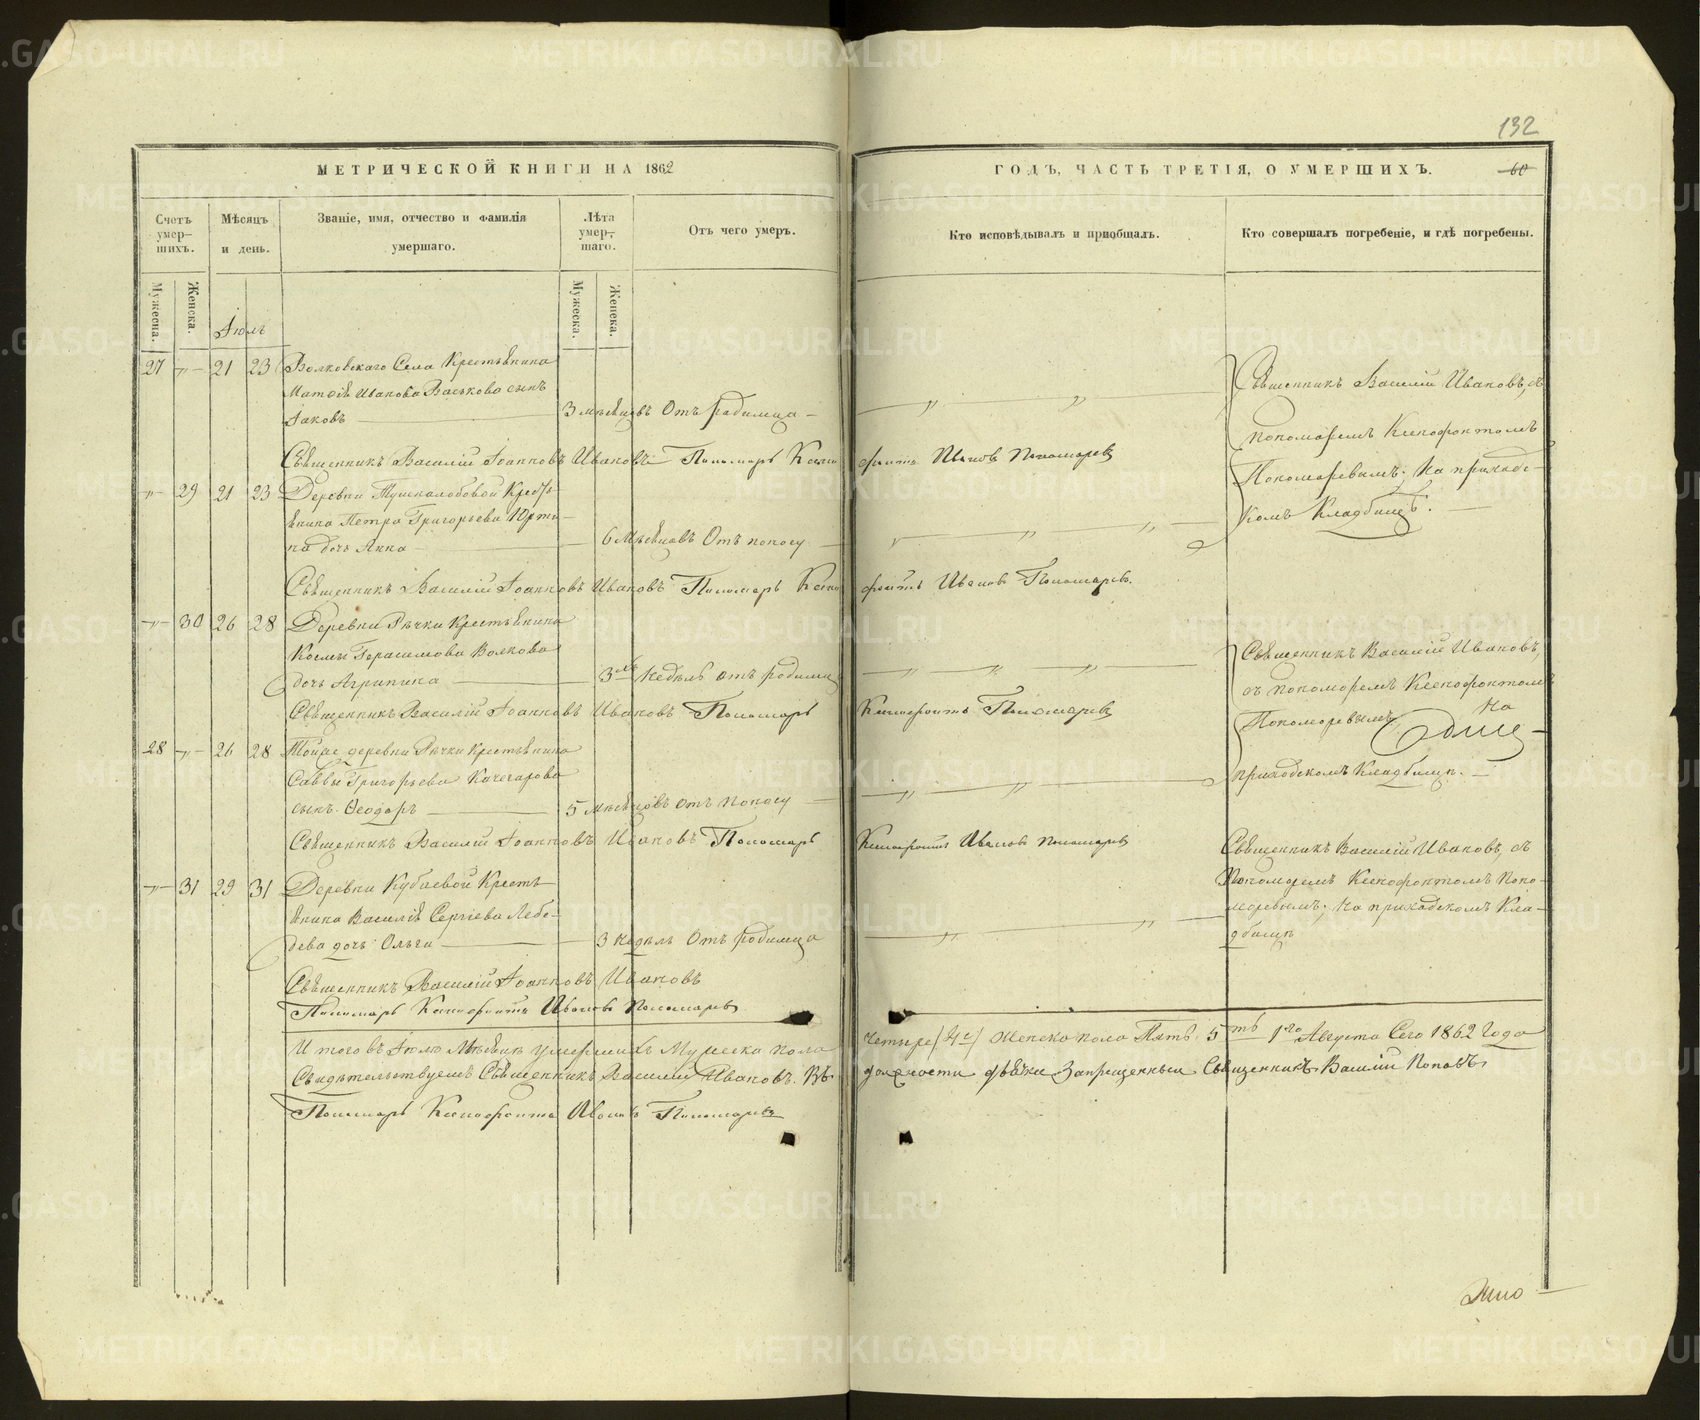 132
МЕТРИЧЕСКОЙ КНИГИ НА 1862
ГОДЪ, ЧАСТЬ ТРЕТІЯ, О УМЕРШИХЪ.
60
Счетъ умер-шихъ.
Мѣсяцъ и день.
Званіе, имя, отчество и фамилія умершаго.
Лѣта умер-шаго.
Отъ чего умеръ.
Кто исповѣдывалъ и пріобщалъ.
Кто совершалъ погребеніе, и гдѣ погребены.
Мужеска.
Женска.
Мужеска.
Женска.
Іюль
27 -"- 21 23 Волковскаго Села Крестьянина
Матѳія Иванова Васькова сынъ
Іаковъ 3 мѣсяцовъ Отъ родимца
Священникъ Василій Іоанновъ Ивановъ Пономарь Ксенофонтъ Ивановъ Пономаревъ
Священникъ Василій Ивановъ, съ
пономаремъ Ксенофонтомъ
Пономаревымъ; На приходс-
комъ Кладбищѣ.
-"- 29 21 23 Деревни Тушкалобовой Кресть-
янина Петра Григорьева Юрти-
на дочь Анна 6 Мѣсяцовъ Отъ поносу
Священникъ Василій Іоанновъ Ивановъ Пономарь Ксенофонтъ Ивановъ Пономаревъ.
-"- 30 26 28 Деревни Рѣчки Крестьянина
Космы Герасимова Волкова
дочь Агрипина 3хъ Недѣль отъ родимца
Священникъ Василій Іоанновъ Ивановъ Пономарь Ксенофонтъ Пономаревъ
Священникъ Василій Ивановъ,
съ пономаремъ Ксенофонтомъ
Пономаревымъ На
приходскомъ Кладбищѣ.
28 -"- 26 28 Тойже деревни Рѣчки Крестьянина
Саввы Григорьева Качегарова
сынъ Ѳеодоръ 5 мѣсяцовъ отъ поносу
Священникъ Василій Іоанновъ Ивановъ Пономарь Ксенофонтъ Ивановъ Пономаревъ
-"- 31 29 31 Деревни Кубаевой Кресть-
янина Василія Сергіева Лебе-
дева дочь Ольга 3 недѣль Отъ родимца
Священникъ Василій Іоанновъ Ивановъ
Пономарь Ксенофонтъ Ивановъ Пономаревъ
Священникъ Василій Ивановъ, съ
Пономаремъ Ксенофонтомъ Поно-
маревымъ; На приходскомъ Кла-
дбищѣ
Итого въ Іюлѣ Мѣсяцѣ умершихъ Мужеска пола Четыре (4е) Женска пола Пять 5ть 1го Августа Сего 1862 Года
Свидѣтельствуемъ Священникъ Василій Ивановъ. Въ должности дьячка Запрещенный Священникъ Василій Поповъ
Пономарь Ксенофонтъ Ивановъ Пономаревъ
METRIKI.GASO-URAL.RU